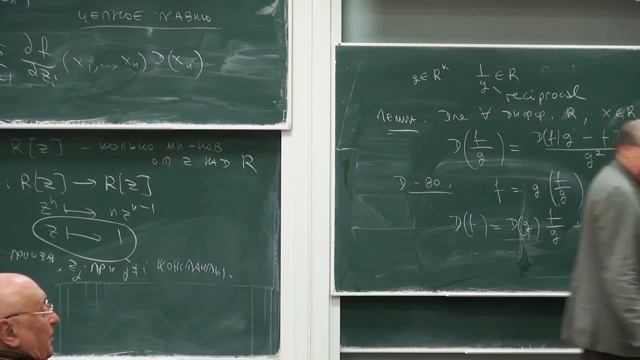 ЦЕПНОЕ ПРАВИЛО
∂f/∂z_i (x_1, ..., x_n) D(x_n)
R[z] – КОЛЬЦО МН-НОВ
ОТ z НАД R
: R[z] → R[z]
z^n ↦ n z^{n-1}
z ↦ 1
z_j ПРИ j ≠ i КОНСТАНТЫ.
g ∈ R^* 1/g ∈ R
reciprocal
Лемма. Для ∀ дифф. R,
D(f/g) = D(f)g – f
g^2
Д-во. f = g (f/g)
D(f) = D(g) f/g +